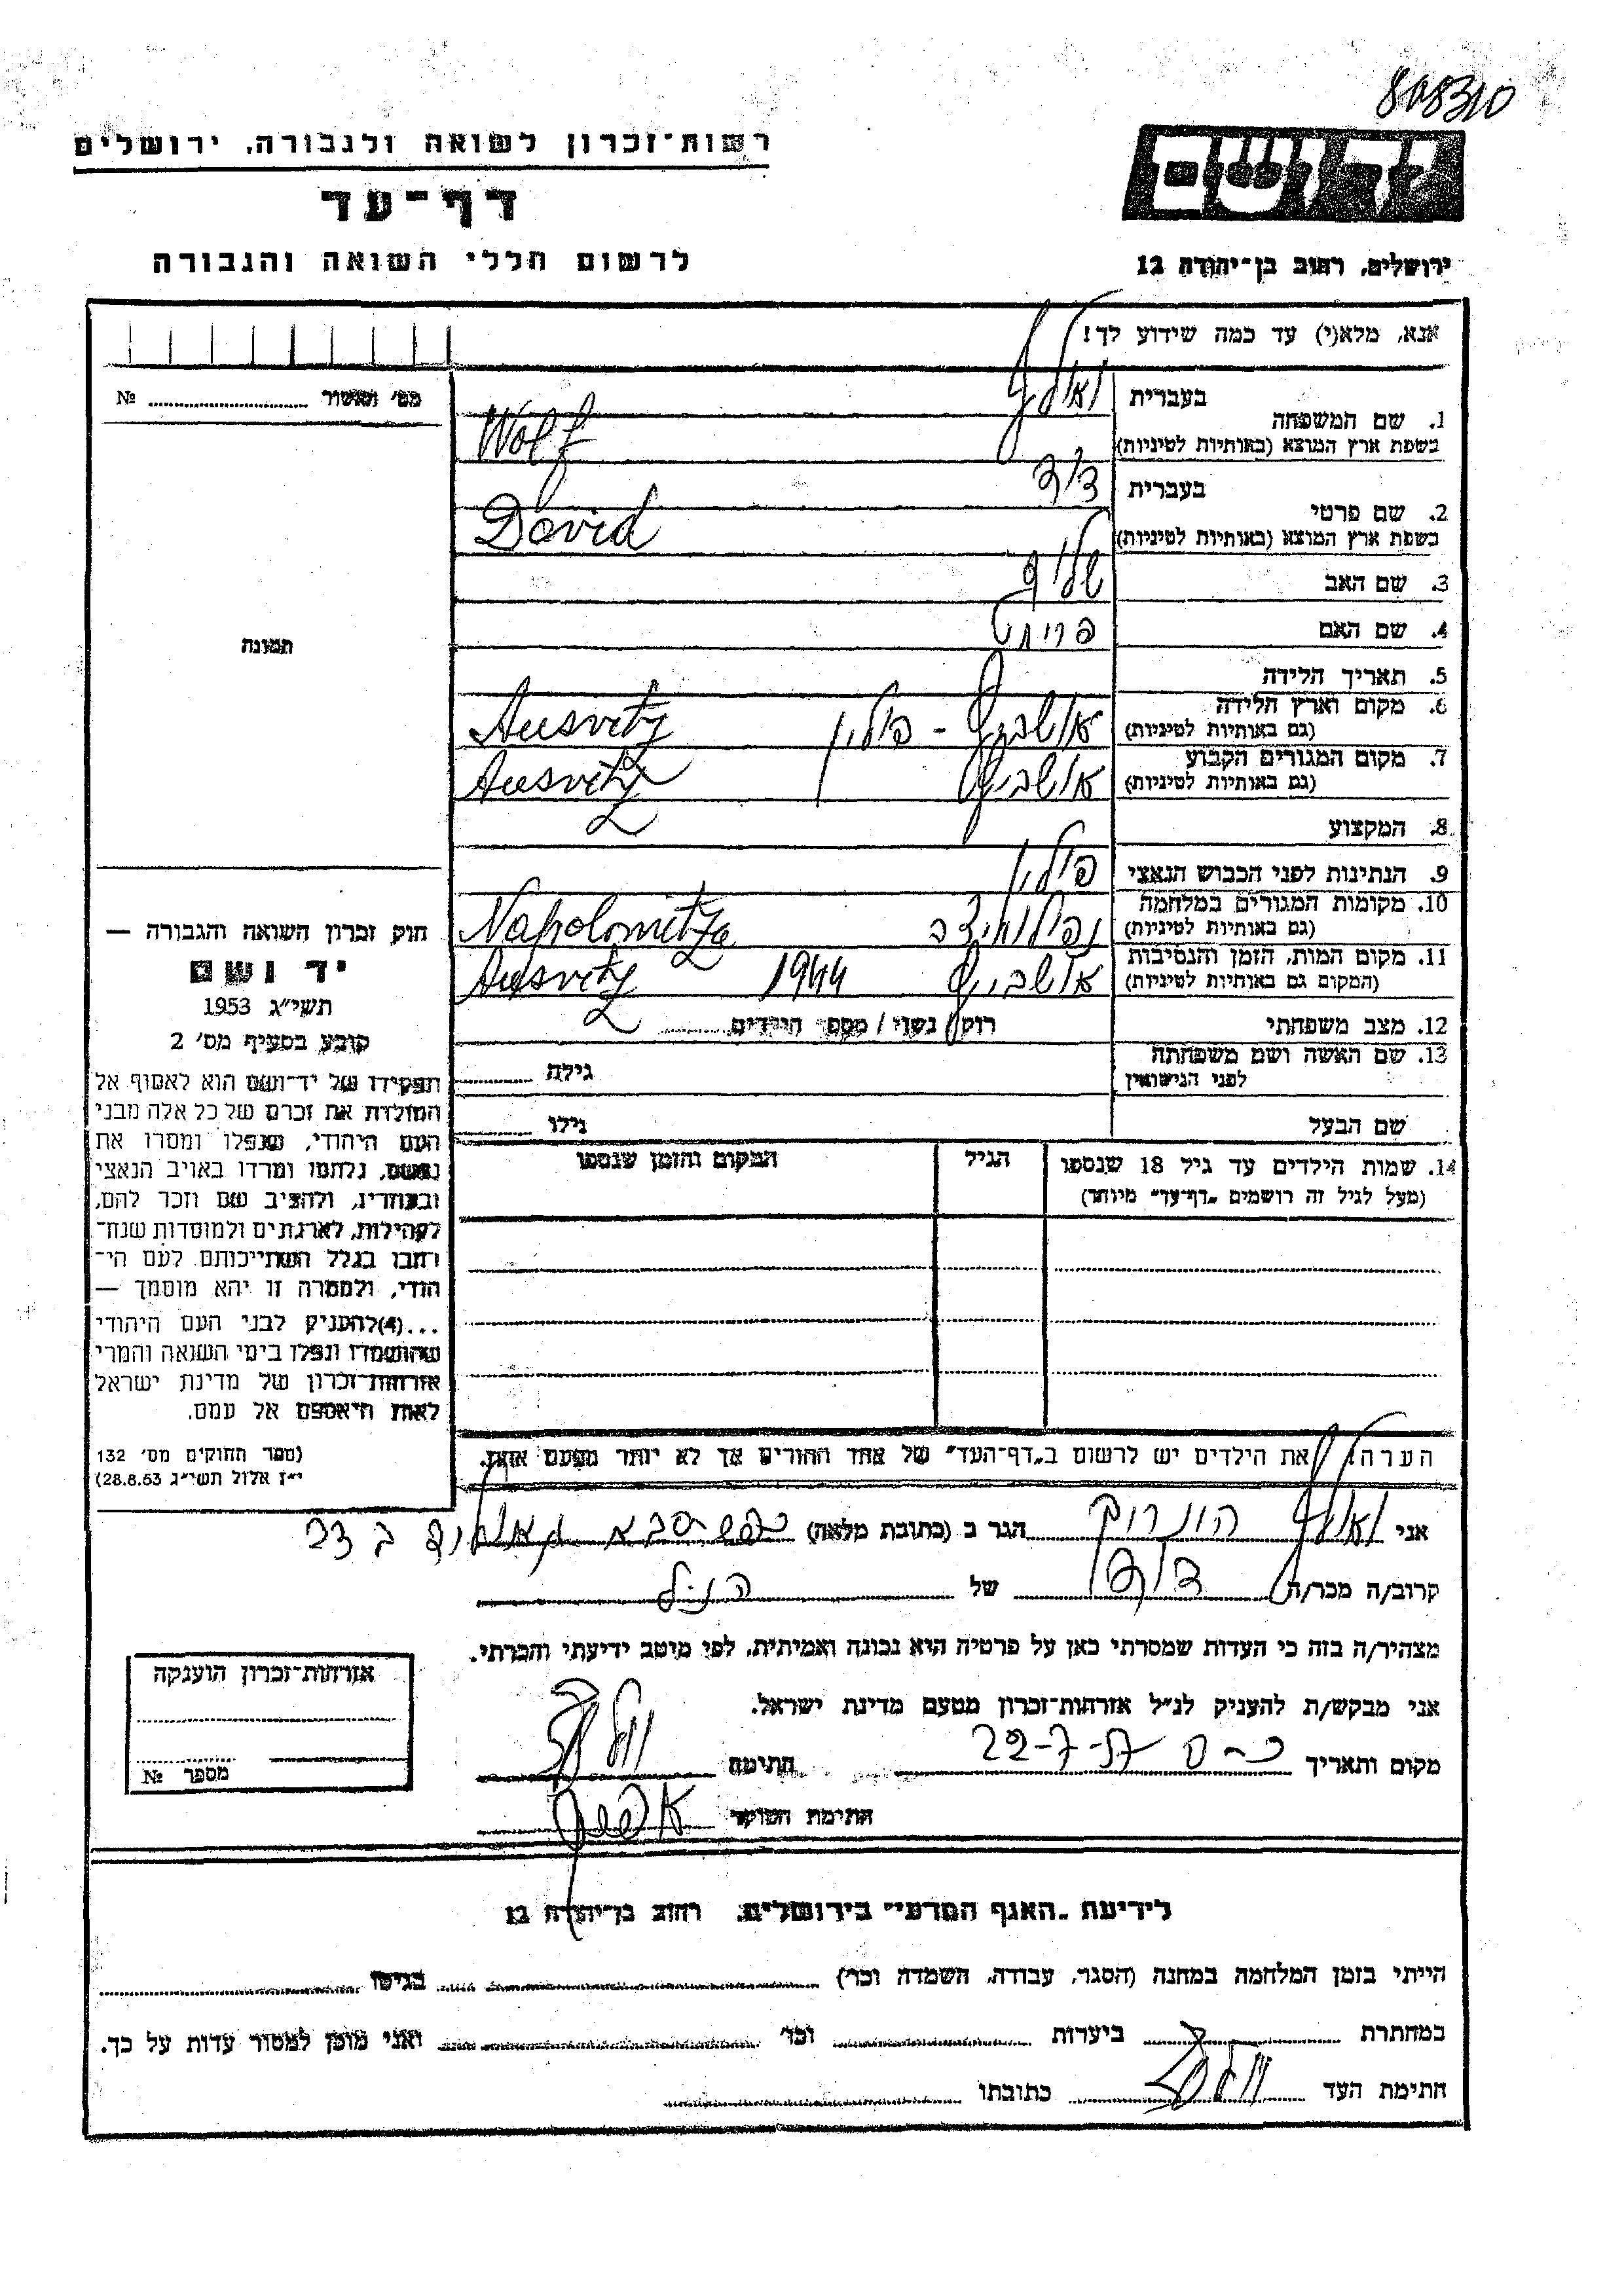 808310
רשות־זכרון לשואה ולגבורה, ירושלים
דף־עד
לרשום חללי השואה והגבורה
יד ושם
ירושלים, רחוב בן־יהודה 12
אנא, מלא(י) עד כמה שידוע לך!
מס' ואשור № ........
1. שם המשפחה בעברית וואלף
בשפת ארץ המוצא (באותיות לטיניות) Wolf
2. שם פרטי בעברית דוד
בשפת ארץ המוצא (באותיות לטיניות) David
3. שם האב
4. שם האם
5. תאריך הלידה
6. מקום וארץ הלידה (גם באותיות לטיניות) אושביץ - פולין Ausvitz
7. מקום המגורים הקבוע (גם באותיות לטיניות) אושביץ Ausvitz
8. המקצוע
9. הנתינות לפני הכבוש הנאצי פולין
10. מקומות המגורים במלחמה (גם באותיות לטיניות) Napolomitza
11. מקום המות, הזמן והנסיבות (המקום גם באותיות לטיניות) אושביץ 1944 Ausvitz
12. מצב משפחתי רוק / נשוי / מספר הילדים ........
13. שם האשה ושם משפחתה לפני הנישואין גילה ........
שם הבעל גילו ........
14. שמות הילדים עד גיל 18 שנספו הגיל המקום והזמן שנספו
(מעל לגיל זה רושמים „דף־עד" מיוחד)
תמונה
חוק זכרון השואה והגבורה —
יד ושם
תשי״ג 1953
קובע בסעיף מס' 2
תפקידו של יד־ושם הוא לאסוף אל
המולדת את זכרם של כל אלה מבני
העם היהודי, שנפלו ומסרו את
נפשם, נלחמו ומרדו באויב הנאצי
ובעוזריו, ולהציב שם וזכר להם,
לקהילות, לארגונים ולמוסדות שנח־
רבו בגלל השתייכותם לעם הי־
הודי, ולמטרה זו יהא מוסמך —
...(4)להעניק לבני העם היהודי
שהושמדו ונפלו בימי השואה והמרי
אזרחות־זכרון של מדינת ישראל
לאות היאספם אל עמם.
(ספר החוקים מס' 132
י״ז אלול תשי״ג 28.8.53)
הערה: את הילדים יש לרשום ב„דף־העד" של אחד ההורים אך לא יותר מפעם אחת.
אני וואלף הגר ב (כתובת מלאה)
קרוב/ה מכר/ה דוד של הנ״ל
מצהיר/ה בזה כי העדות שמסרתי כאן על פרטיה היא נכונה ואמיתית, לפי מיטב ידיעתי והכרתי.
אני מבקש/ת להעניק לנ״ל אזרחות־זכרון מטעם מדינת ישראל.
מקום ותאריך 22-7-57 חתימה
חתימת הפוקד
אזרחות־זכרון הוענקה
מספר №
לידיעת „האגף המדעי" בירושלים, רחוב בן־יהודה 12
הייתי בזמן המלחמה במחנה (הסגר, עבודה, השמדה וכו') ........ בגיטו ........
במחתרת ........ ביערות ........ וכו' ........ ואני מוכן למסור עדות על כך.
חתימת העד ........ כתובתו ........